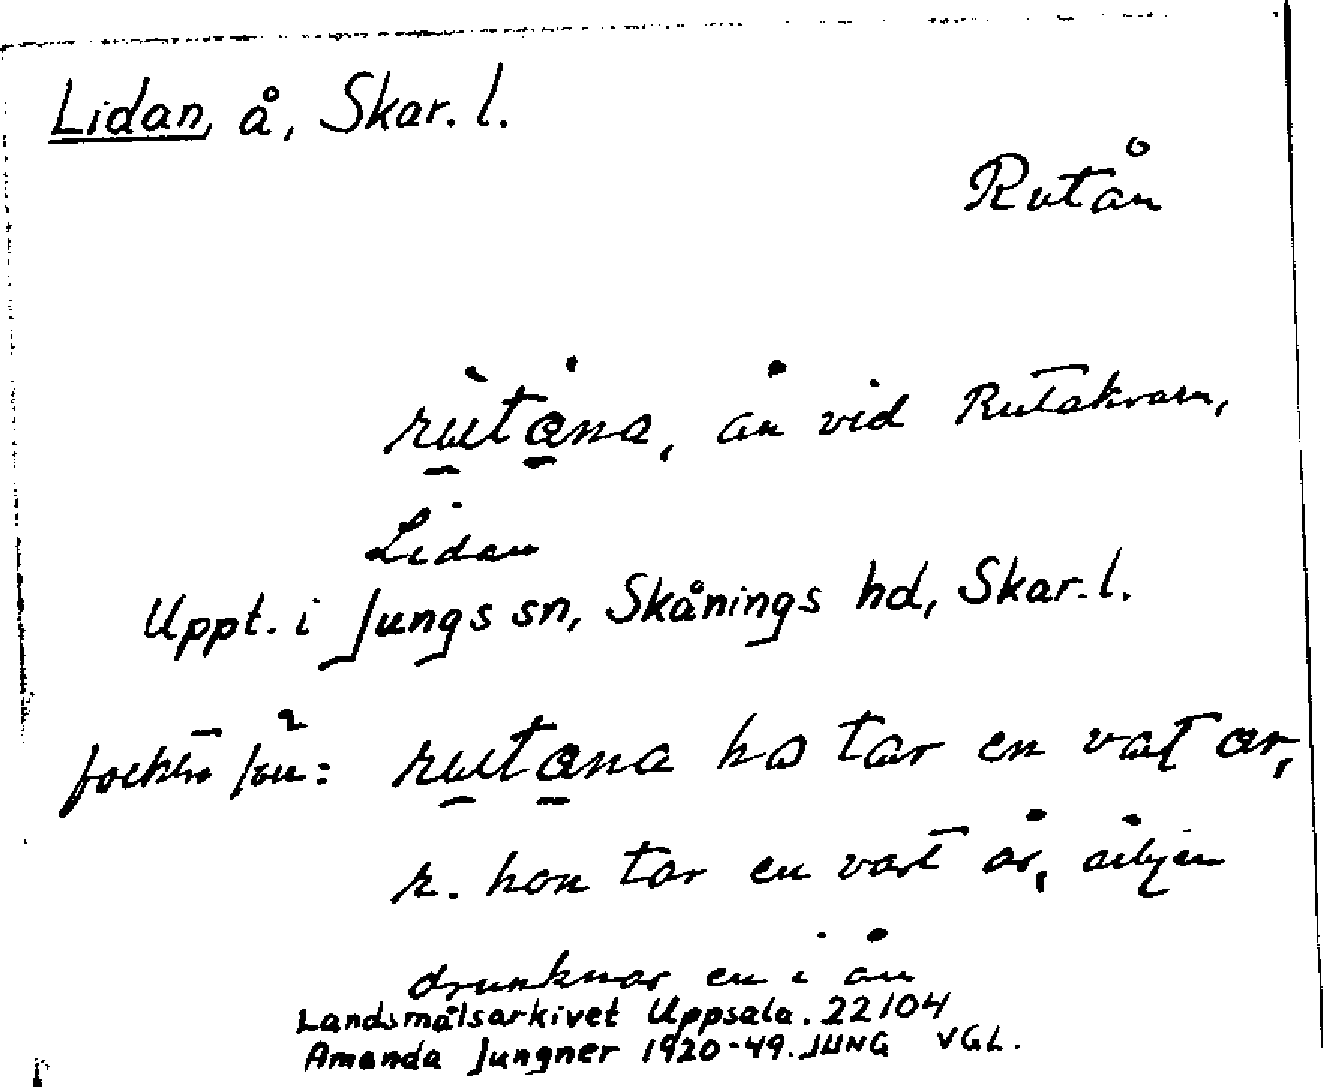 Lidan, å, Skar. l.
Rutån
rutåna, ån vid Rutakvarn,
Lidan
Uppt. i Jungs sn, Skånings hd, Skar. l.
rutana ho tar en vat ar,
r. hon tar en vart år,
drunknar en i ån
Landsmålsarkivet Uppsala. 22104
Amanda Jungner 1920-49. JUNG VGL.